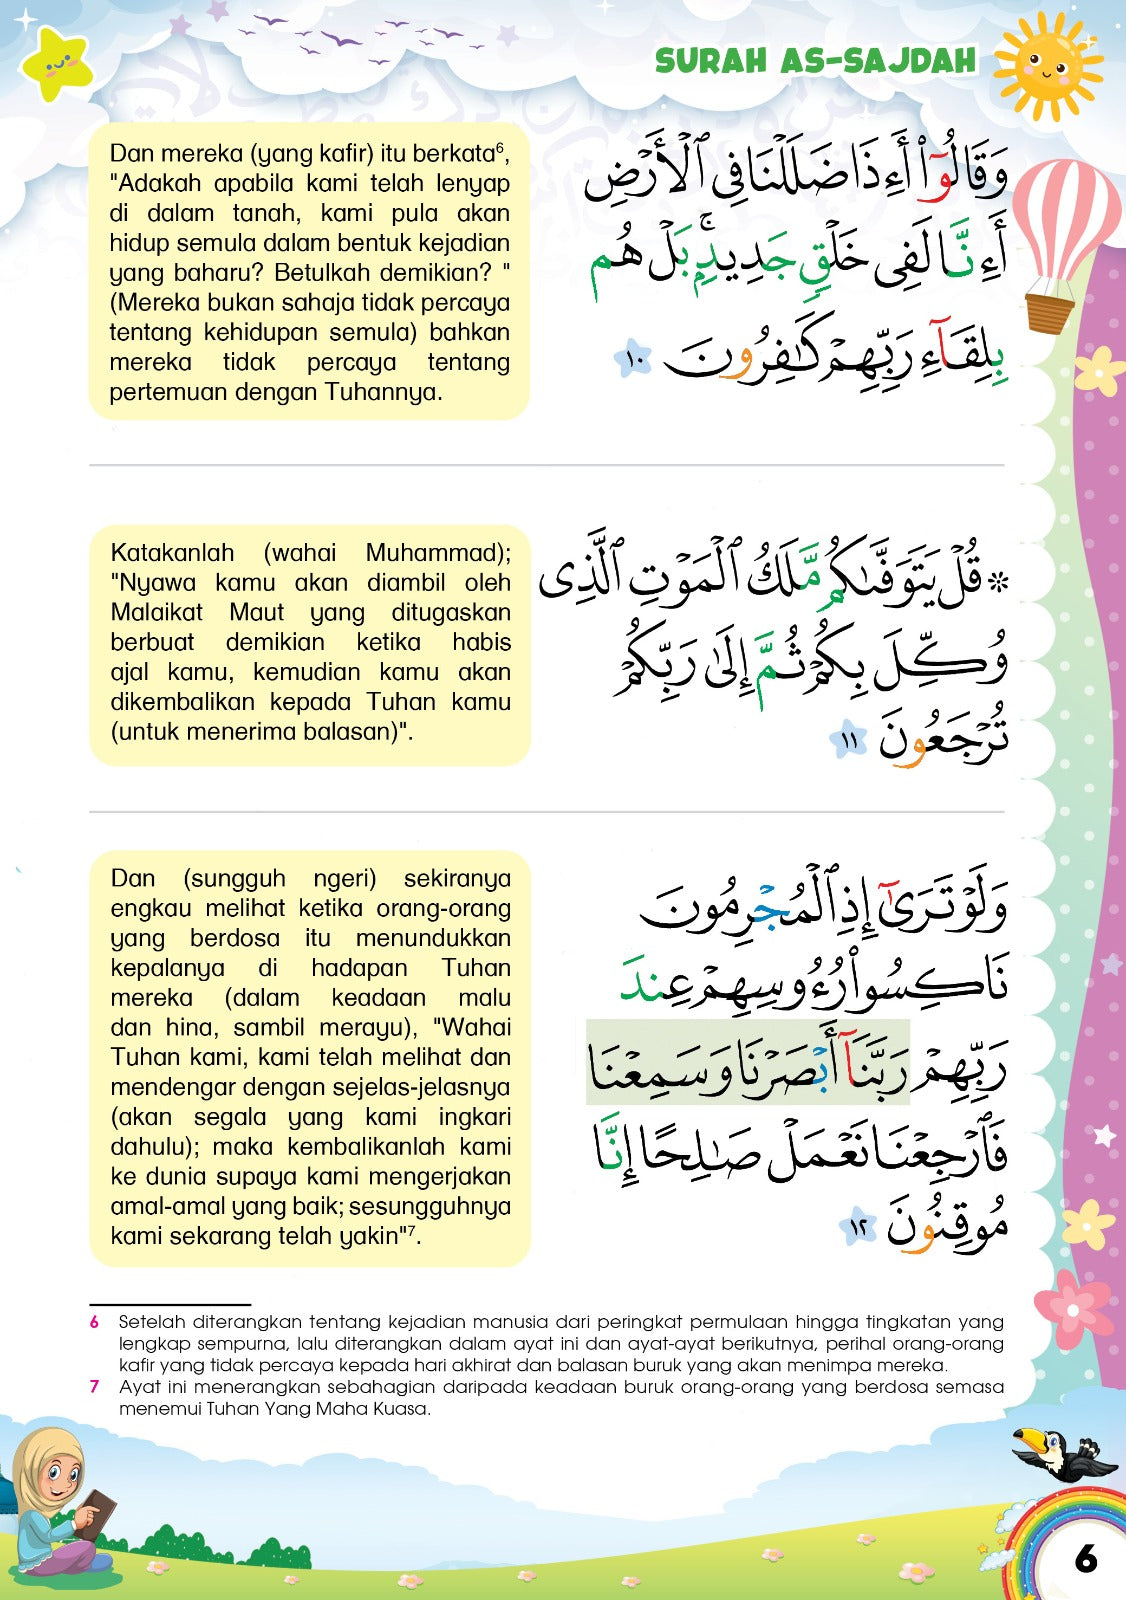 SURAH AS-SAJDAH
وَقَالُوٓا۟ أَءِذَا ضَلَلْنَا فِى ٱلْأَرْضِ
أَءِنَّا لَفِى خَلْقٍ جَدِيدٍۭ ۚ بَلْ هُم
بِلِقَآءِ رَبِّهِمْ كَـٰفِرُونَ ١٠
Dan mereka (yang kafir) itu berkata⁶,
"Adakah apabila kami telah lenyap
di dalam tanah, kami pula akan
hidup semula dalam bentuk kejadian
yang baharu? Betulkah demikian? "
(Mereka bukan sahaja tidak percaya
tentang kehidupan semula) bahkan
mereka tidak percaya tentang
pertemuan dengan Tuhannya.
۞ قُلْ يَتَوَفَّىٰكُم مَّلَكُ ٱلْمَوْتِ ٱلَّذِى
وُكِّلَ بِكُمْ ثُمَّ إِلَىٰ رَبِّكُمْ
تُرْجَعُونَ ١١
Katakanlah (wahai Muhammad);
"Nyawa kamu akan diambil oleh
Malaikat Maut yang ditugaskan
berbuat demikian ketika habis
ajal kamu, kemudian kamu akan
dikembalikan kepada Tuhan kamu
(untuk menerima balasan)".
وَلَوْ تَرَىٰٓ إِذِ ٱلْمُجْرِمُونَ
نَاكِسُوا۟ رُءُوسِهِمْ عِندَ
رَبِّهِمْ رَبَّنَآ أَبْصَرْنَا وَسَمِعْنَا
فَٱرْجِعْنَا نَعْمَلْ صَـٰلِحًا إِنَّا
مُوقِنُونَ ١٢
Dan (sungguh ngeri) sekiranya
engkau melihat ketika orang-orang
yang berdosa itu menundukkan
kepalanya di hadapan Tuhan
mereka (dalam keadaan malu
dan hina, sambil merayu), "Wahai
Tuhan kami, kami telah melihat dan
mendengar dengan sejelas-jelasnya
(akan segala yang kami ingkari
dahulu); maka kembalikanlah kami
ke dunia supaya kami mengerjakan
amal-amal yang baik; sesungguhnya
kami sekarang telah yakin"⁷.
6 Setelah diterangkan tentang kejadian manusia dari peringkat permulaan hingga tingkatan yang
lengkap sempurna, lalu diterangkan dalam ayat ini dan ayat-ayat berikutnya, perihal orang-orang
kafir yang tidak percaya kepada hari akhirat dan balasan buruk yang akan menimpa mereka.
7 Ayat ini menerangkan sebahagian daripada keadaan buruk orang-orang yang berdosa semasa
menemui Tuhan Yang Maha Kuasa.
6